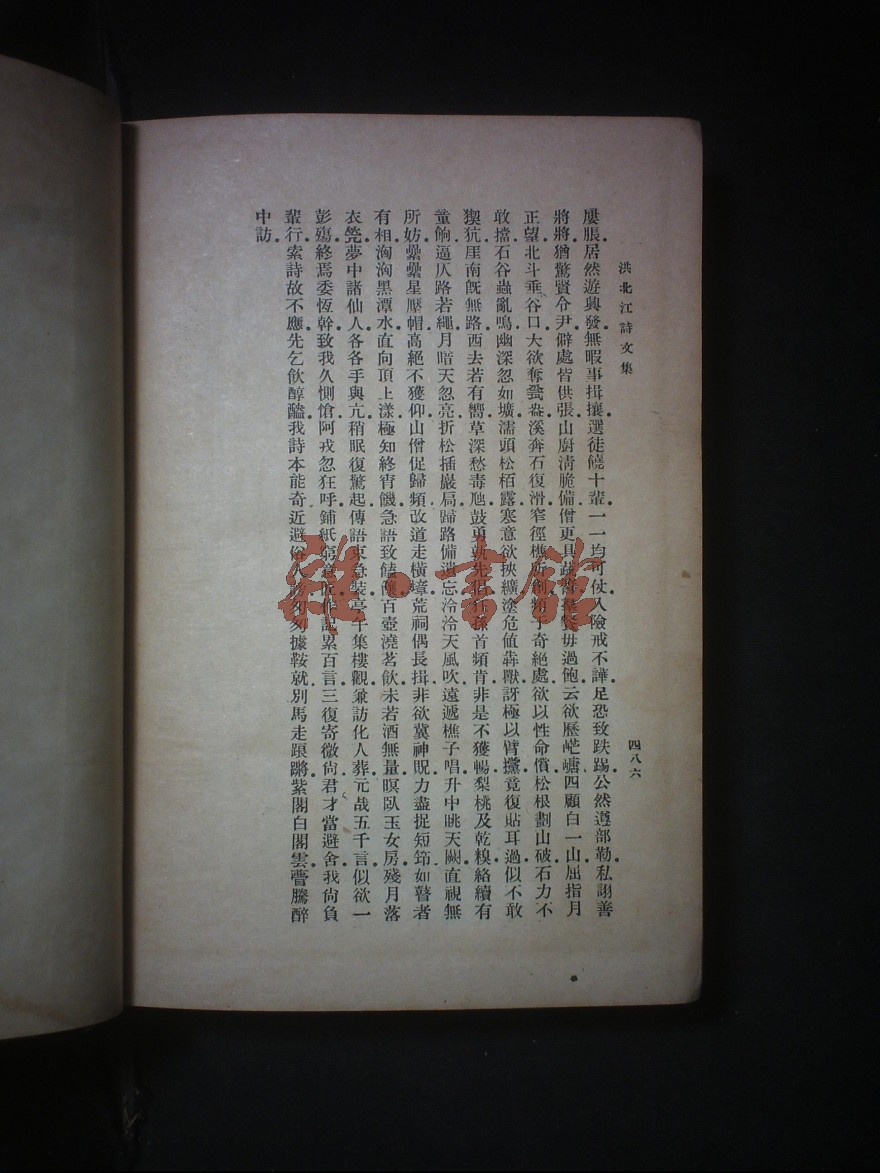 洪北江詩文集
四八六
屢脹居然遊興發無暇事揖攘選徒饒十輩一一均可仗入險戒不譁足恐致跌踢公然遵部勒私詡善
將將猶驚賢令尹僻處皆供張山廚清脆備僧更具蔬 餐毋過飽云欲歷 四顧白一山屈指月
正望北斗垂谷口大欲奪 溪奔石復滑窄徑樵 奇絕處欲以性命償松根劃山破石力不
敢擋石谷蟲亂鳴幽深忽如壙濡頭松栢露寒意欲挾纊塗危値犇獸訝極以臂攩竟復貼耳過似不敢
猰犺厓南旣無路西去若有嚮草深愁毒虺鼓勇 先 首頻肯非是不獲暢梨桃及乾糗絡續有
童餉逼仄路若繩月暗天忽亮折松插巖局歸路備遺忘泠泠天風吹遠遞樵子唱升中眺天闕直視無
所妨纍纍星壓帽高絕不獲仰山僧促歸頻改道走橫嶂荒祠偶長揖非欲冀神貺力盡捉短筇如瞽者
有相洶洶黑潭水直向頂上漾極知終宵饑急語致饁釀百壺澆茗飲未若酒無量暝臥玉女房殘月落
衣筦夢中諸仙人各各手與亢稍眠復驚起傳語束急裝亭午集樓觀兼訪化人葬元哉五千言似欲一
彭殤終焉委恆幹致我久惻愴阿戎忽狂呼鋪紙 記累百言三復寄微尙君才當避舍我尙負
輩行索詩故不應先乞飮醇醠我詩本能奇近避俗人 匆匆據鞍就別馬走踉蹡紫閣白閣雲瞢騰醉
中訪
雜·書館